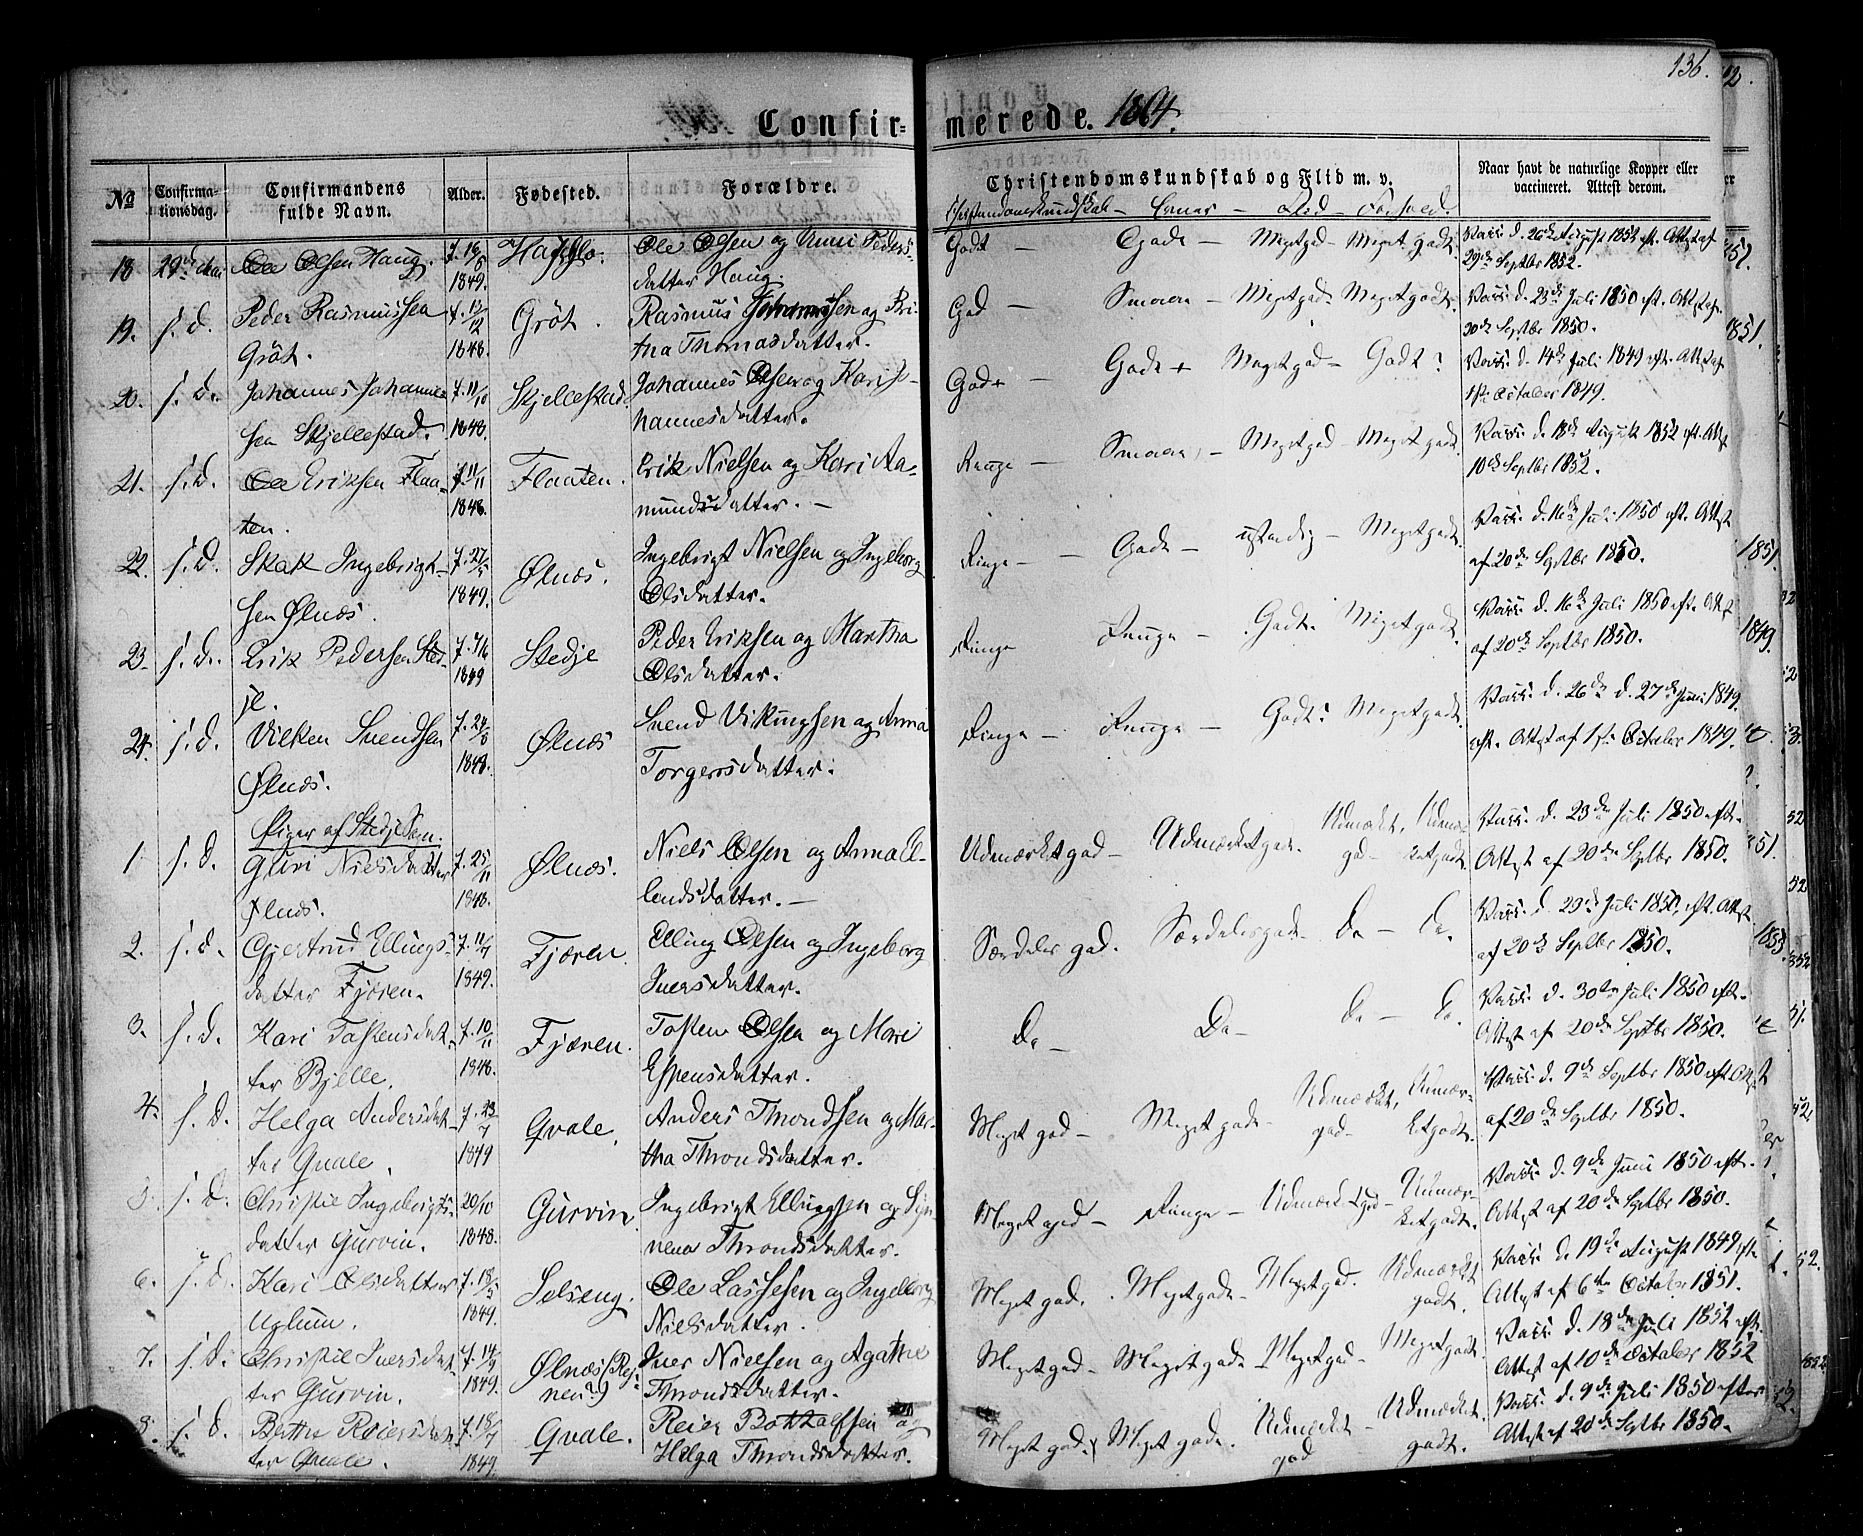 136.
Confir= merede. 1864.
No
Confirma-
tionsdag.
Confirmandens
fulde Navn.
Alder.
Fødested.
Forældre.
Christendomskundskab og Flid m. v.
Christendomskundskab – Evner – Flid – Forhold.
Naar havt de naturlige Kopper eller
vaccineret. Attest derom.
18 29de Mai Ole Olsen Haug. f. 19/8 1849. Hafslo. Ole Olsen og Unni Peders-
datter Haug.
Godt – Gode – Meget god – Meget godt. Vacc. d. 26de August 1852 eft. Attest af
29de Septbr 1852.
19. s. d. Peder Rasmussen
Gröt. f. 13/12 1848. Gröt. Rasmus Johannessen og Bri-
tha Thomasdatter.
God – Smaae – Meget god Meget godt. Vacc. d. 23de Juli 1850 eft. Attest af
30de Septbr 1850.
20. s. d. Johannes Johannes-
sen Skjellestad. f. 11/10 1848. Skjellestad. Johannes Olsen og Kari Jo-
hannesdatter.
Godt – Gode + Meget god – Godt? Vacc. d. 14de Juli 1849 eft. Attest af
1ste October 1849.
21. s. d. Ole Eriksen Flaa-
ten. f. 11/11 1848. Flaaten. Erik Nielsen og Kari Aa-
mundsdatter. –
Ringe – Smaae – Meget god – Meget godt. Vacc. d. 18de August 1852 eft. Attest
10de Septbr 1852.
22. s. d. Skak Ingebrigt-
sen Ølnæs. f. 27/5 1849. Ølnæs. Ingebrigt Nielsen og Ingeborg
Olsdatter.
Ringe – Gode – ustadig – Meget godt. Vacc. d. 16de Juli 1850 eft. Attest
af 20de Septbr 1850.
23. s. d. Erik Pedersen Sted-
je. 1849 Stedje Peder Eriksen og Martha
Olsdatter.
Ringe Ringe – Godt. Meget godt. Vacc. d. 16de Juli 1850 eft. Attest
af 20de Septbr 1850.
24. s. d. Vilken Svendsen
Ølnæs. f. 24/8 1848. Ølnæs Svend Vikingsen og Anna
Torgersdatter.
Ringe – Ringe – Godt? Meget godt. Vacc. d. 26de d. 27de Juni 1849.
eft. Attest af 1ste October 1849.
Piger af Stedje Sogn.
1. s. d. Guri Nielsdatter
Ølnæs. f. 25/11 1848. Ølnæs. Niels Olsen og Anna El-
lendsdatter. –
Udmærket god – Udmærket gode. Udmærket god – Udmær-
ket godt. Vacc. d. 23de Juli 1850 eft.
Attest af 20de Septbr 1850.
2. s. d. Gjertrud Ellings-
datter Fjæren. 1849. Fjæren. Elling Olsen og Ingeborg
Iversdatter.
Særdeles god. Særdeles gode – Do – Do. Vacc. d. 23de Juli 1850, eft. Attest
af 20de Septbr 1850.
3. s. d. Kari Tostensdat-
ter Bjelle. f. 10/11 1848. Fjæren. Tosten Olsen og Mari
Espensdatter.
Do – Do – Do – Do. Vacc. d. 30te Juli 1850 eft.
Attest af 20de Septbr 1850.
4. s. d. Helga Andersdat-
ter Qvale. f. 23/7 1849 Qvale. Anders Throndsen og Mar-
tha Throndsdatter.
Meget god – Meget gode – Udmærket god – Udmær-
ket godt. Vacc. d. 9de Septbr 1850 eft. Attest
af 20de Septbr 1850.
5. s. d. Christie Ingebrigts-
datter Gurvin. 20/10 1848. Gurvin. Ingebrigt Ellingsen og Syn-
neva Throndsdatter.
Meget god – Ringe – Udmærket god – Udmær-
ket godt. Vacc. d. 9de Juni 1850 eft.
Attest af 20de Septbr 1850.
6. s. d. Kari Olsdatter
Uglum. f. 18/5 1849. Selseng. Ole Lassesen og Ingeborg
Nielsdatter.
Meget god. Meget gode – Meget god. Udmærket
godt. Vacc. d. 19de August 1849 eft.
Attest af 6te October 1851.
7. s. d. Christie Iversdat-
ter Gurvin. f. 14/9 1849. Ølnæs Iver Nielsen og Agathe
Throndsdatter.
Meget god – Meget gode – Meget god – Meget godt. Vacc. d. 18de Juli 1852 eft.
Attest af 10de October 1852
8. s. d. Berthe Reiersdat-
ter Qvale. f. 18/7 1849. Qvale. Reier Botholfsen og
Helga Throndsdatter.
Meget god. Meget gode. Udmærket god Udmærket
godt. Vacc. d. 9de Juli 1850 efter
Attest af 20de Septbr 1850.